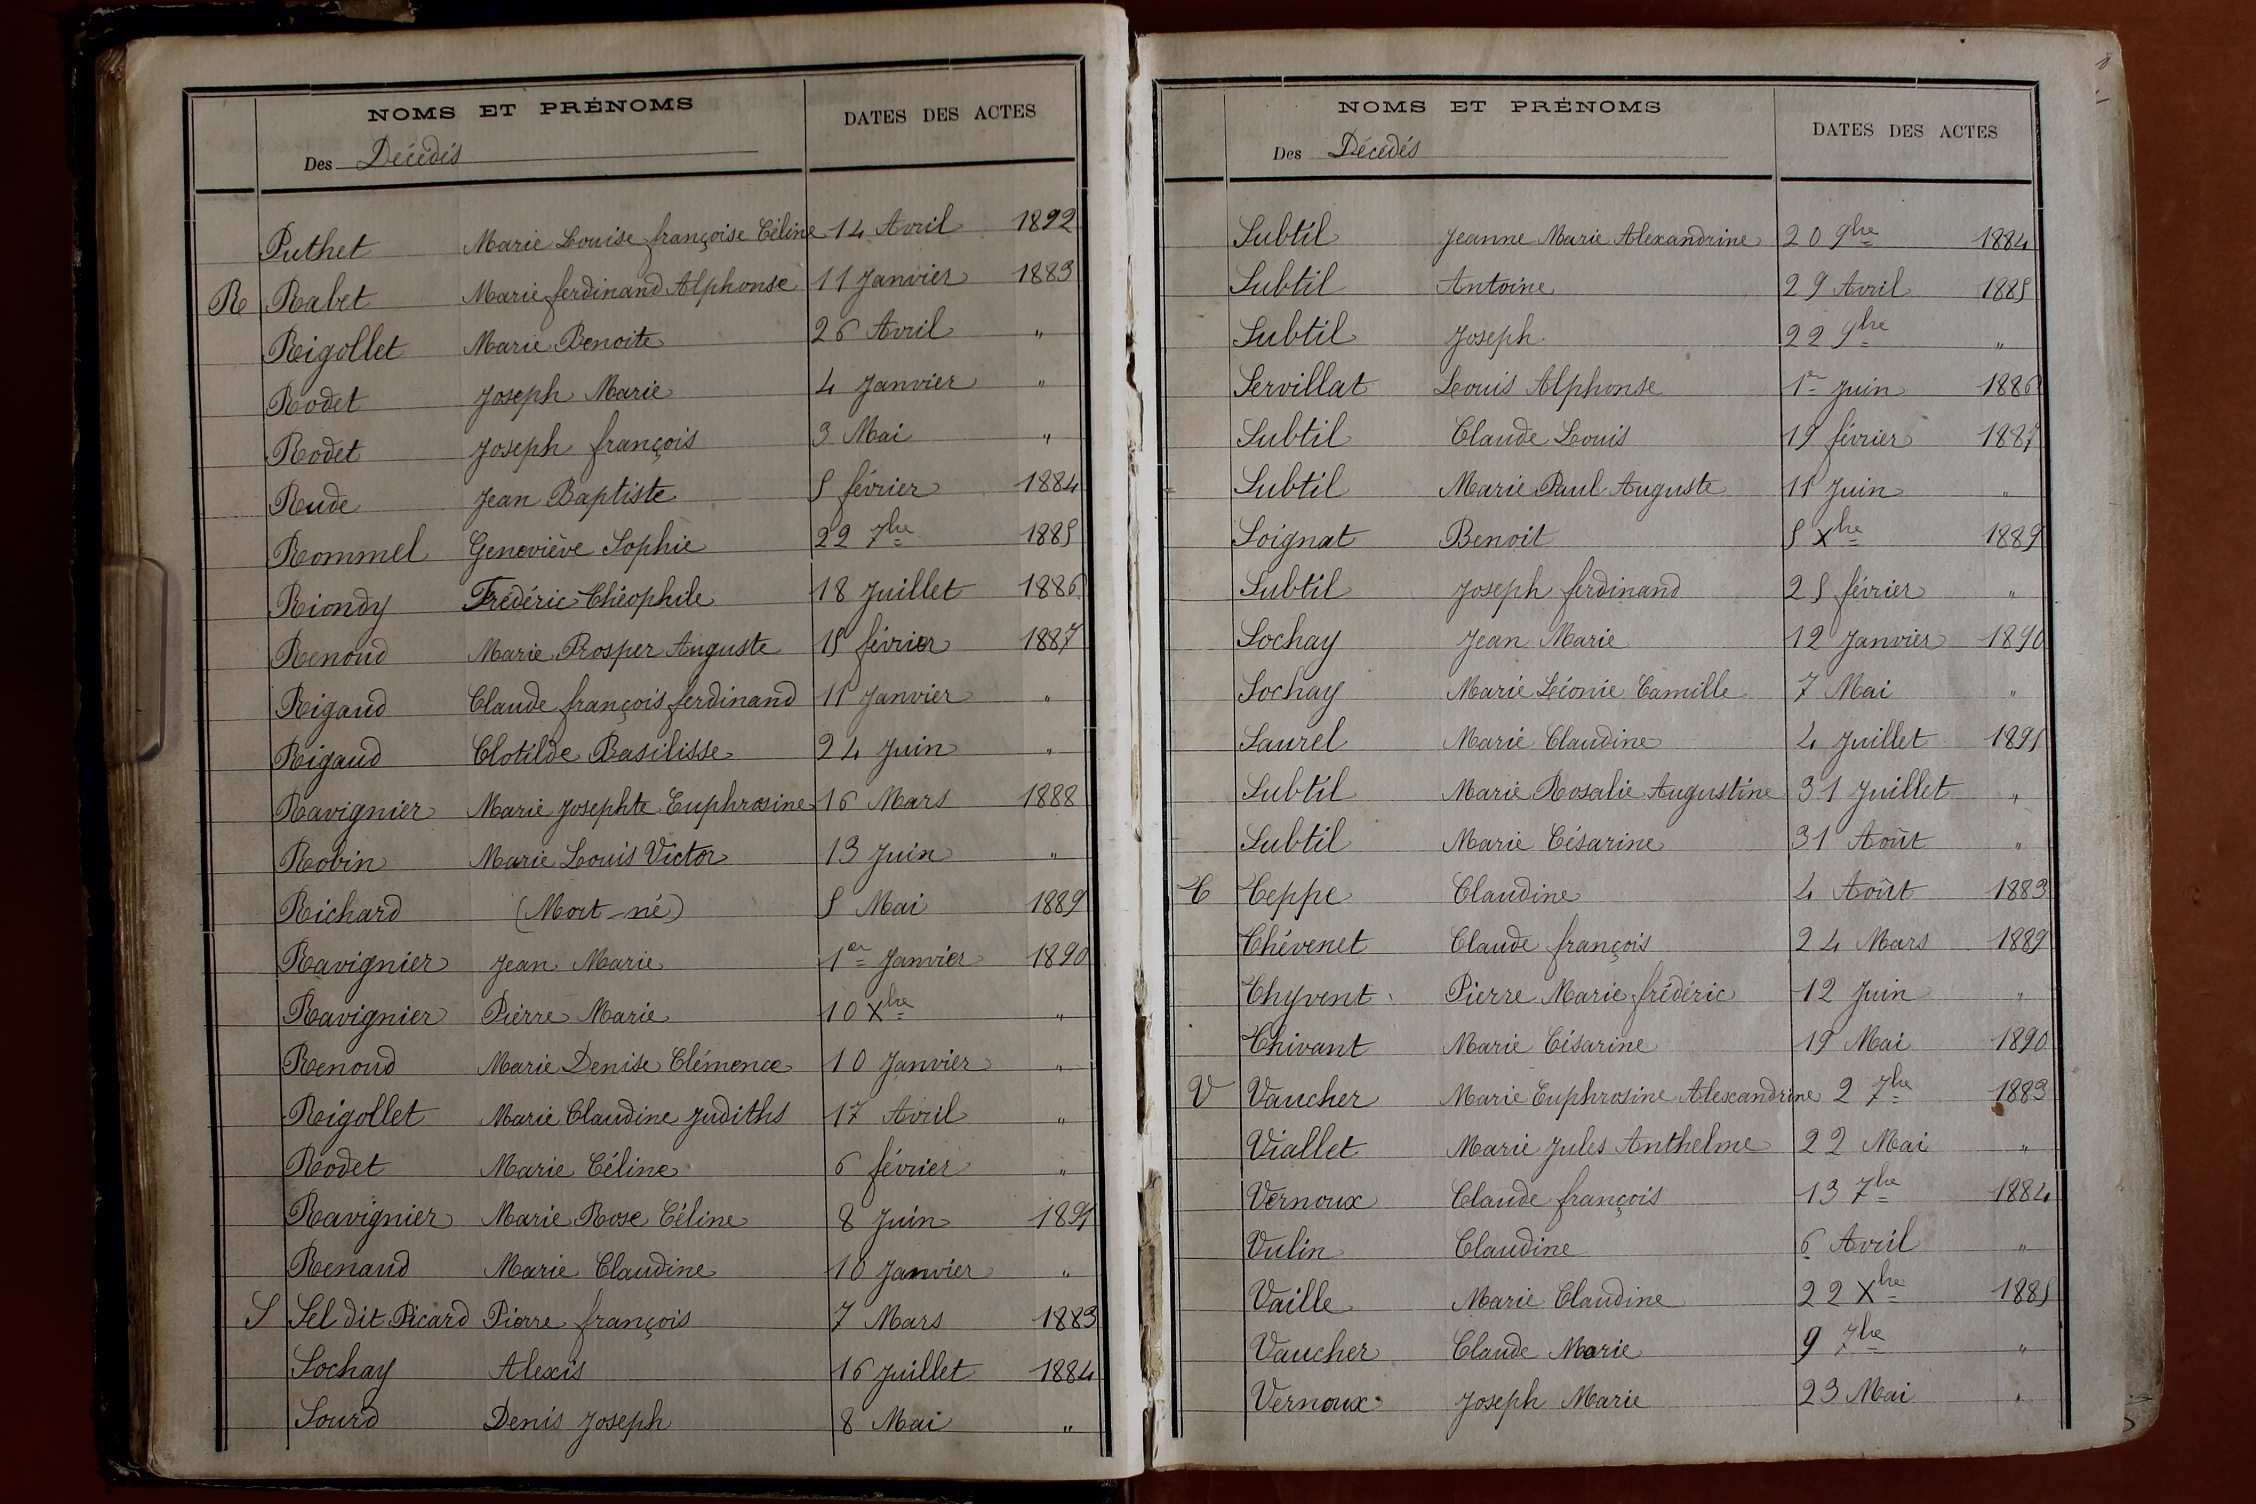 NOMS ET PRÉNOMS
DATES DES ACTES
Des Décédés
Puthet Marie Louise françoise Céline 14 Avril 1892
R Rabet Marie ferdinand Alphonse 11 Janvier 1883
Rigollet Marie Benoite 26 Avril "
Rodet Joseph Marie 4 Janvier "
Rodet Joseph françois 3 Mai "
Rude Jean Baptiste 5 février 1884
Rommel Geneviève Sophie 22 7bre 1885
Riondy Frédéric Théophile 18 Juillet 1886
Renoud Marie Prosper Auguste 15 février 1887
Rigaud Claude françois ferdinand 11 Janvier "
Rigaud Clotilde Basilisse 24 Juin "
Ravignier Marie Josephte Euphrosine 16 Mars 1888
Robin Marie Louis Victor 13 Juin "
Richard (Mort-né) 5 Mai 1889
Ravignier Jean Marie 1er Janvier 1890
Ravignier Pierre Marie 10 Xbre "
Renoud Marie Denise Clémence 10 Janvier "
Rigollet Marie Claudine Judiths 17 Avril "
Rodet Marie Céline 6 février "
Ravignier Marie Rose Céline 8 Juin 1891
Renaud Marie Claudine 10 Janvier "
S Sel dit Picard Pierre françois 7 Mars 1883
Sochay Alexis 16 Juillet 1884
Sourd Denis Joseph 8 Mai "
NOMS ET PRÉNOMS
DATES DES ACTES
Des Décédés
Subtil Jeanne Marie Alexandrine 20 9bre 1884
Subtil Antoine 29 Avril 1885
Subtil Joseph 22 9bre "
Servillat Louis Alphonse 1er Juin 1886
Subtil Claude Louis 19 février 1887
Subtil Marie Paul Auguste 11 Juin "
Soignat Benoit 5 Xbre 1889
Subtil Joseph ferdinand 25 février "
Sochay Jean Marie 12 Janvier 1890
Sochay Marie Léonie Camille 7 Mai "
Saurel Marie Claudine 4 Juillet 1891
Subtil Marie Rosalie Augustine 31 Juillet "
Subtil Marie Césarine 31 Août "
T Teppe Claudine 4 Août 1883
Thévenet Claude françois 24 Mars 1889
Thyvent Pierre Marie frédéric 12 Juin "
Thivant Marie Césarine 19 Mai 1890
V Vaucher Marie Euphrosine Alexandrine 2 7bre 1883
Viallet Marie Jules Anthelme 22 Mai "
Vernoux Claude françois 13 7bre 1884
Vulin Claudine 6 Avril "
Vaille Marie Claudine 22 Xbre 1885
Vaucher Claude Marie 9 7bre "
Vernoux Joseph Marie 23 Mai "